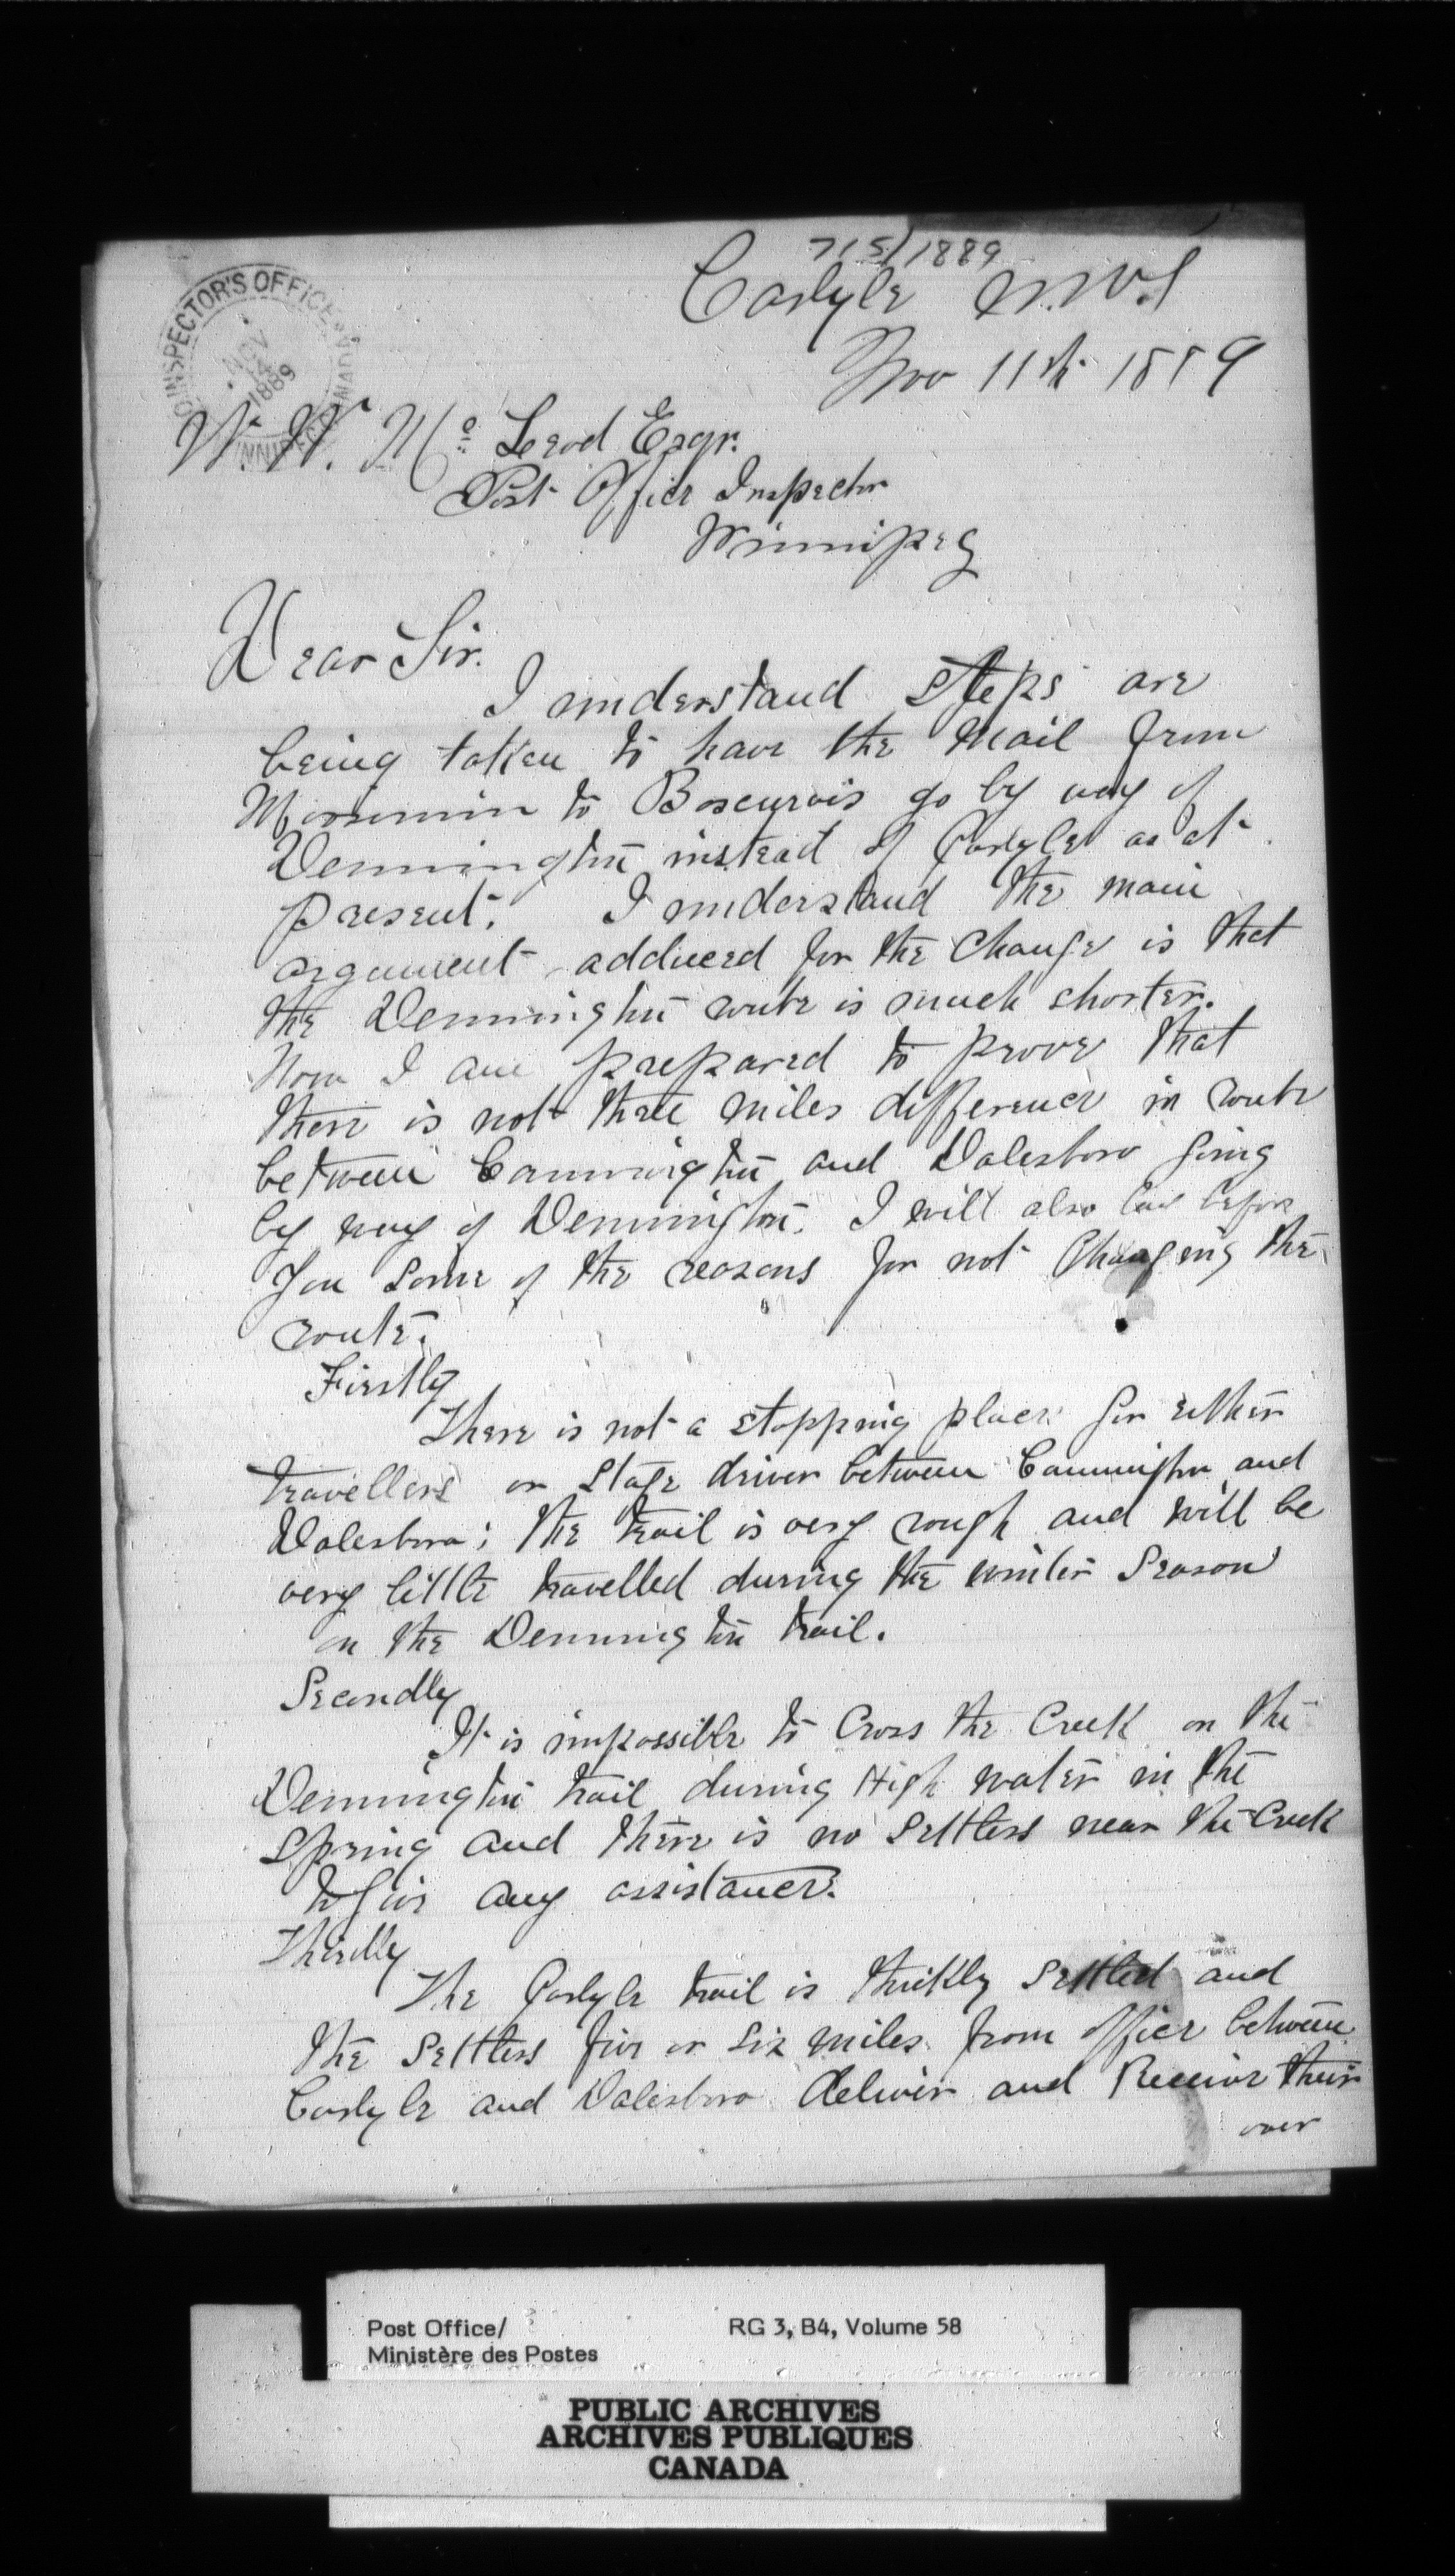 715/1889
Carlyle N.W.T
P.O. INSPECTOR'S OFFICE CANADA
NOV 14 1889
WINNIPEG
Nov 11th 1889
W. W. Mc Leod Esqr.
Post Office Inspector
Winnipeg
Dear Sir.
I understand steps are
being taken to have the mail from
Moosomin to Boscurvis go by way of
Dennington instead of Carlyle as at
present. I understand the main
argument adduced for the change is that
the Dennington route is much shorter.
Now I am prepared to prove that
there is not three miles difference in route
between Cannington and Dalesboro going
by way of Dennington. I will also lay before
you some of the reasons for not Changeing the
route.
Firstly
There is not a stopping place for either
travellers or stage driver between Cannington and
Dalesboro; the trail is very rough and will be
very little travelled during the winter Season
on the Dennington trail.
Secondly
It is impossible to Cross the Creek on the
Dennington trail during High water in the
spring and there is no settlers near the Creek
to give any assistance.
Thirdly
The Carlyle trail is thickly settled and
the settlers five or six miles from office between
Carlyle and Dalesboro deliver and Receive their
over
Post Office/
Ministère des Postes
RG 3, B4, Volume 58
PUBLIC ARCHIVES
ARCHIVES PUBLIQUES
CANADA